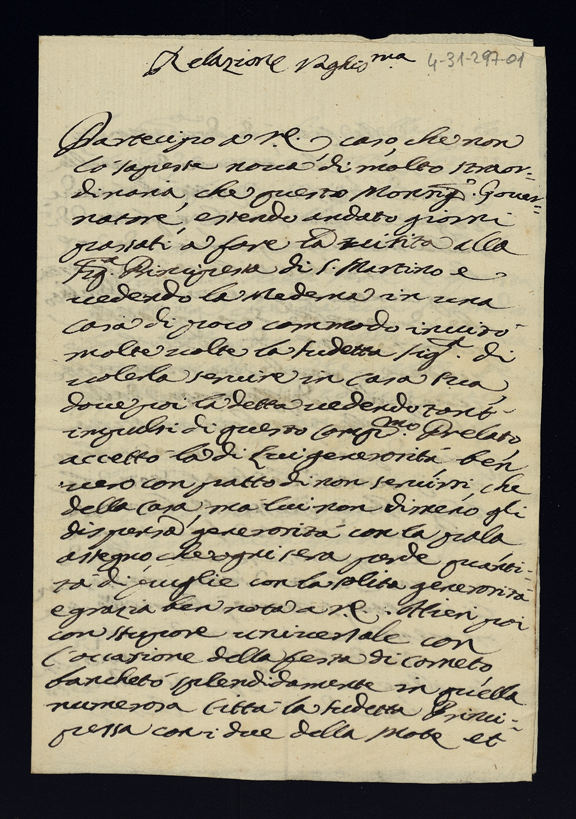 Relazione Vaghis.ma 4-31-297-01
Partecipo a V.E. caso, che non
lo sapesse nova di molto straor-
dinaria, che questo Monsig.r Gover-
natore, essendo andato giorni
passati a fare la visita alla
Sig.a Principessa di S. Martino e
vedendo la Medema in una
casa di poco commodo invitò
molte volte la sudetta Sig.a di
volerla servire in casa sua,
dove poi la detta vedendo tant'
impulsi di questo Prelato
accettò la di Lui generosità ben
vero con patto di non servirsi che
della casa, ma lui non dimeno gli
dispensa generosità con la
assegno che ogni sera perde quanti-
tà di puglie con la solita generosità
e grazia ben nota a V.E. Hieri poi
con stupore universale con
l'occasione della festa di Corneto
banchetò splendidamente in quella
numerosa Città la sudetta Princi-
pessa con i due della Mote et